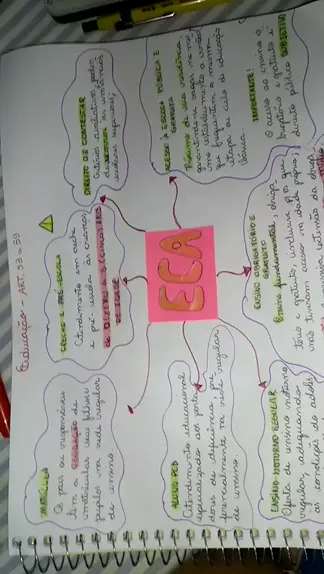 Educação - ART. 53 a 59
ECA
MATRÍCULA
Os pais ou responsáveis
tem a OBRIGAÇÃO de
matricular seus filhos e
pupilos na rede regular
de ensino
CRECHE E PRÉ-ESCOLA
Atendimento em creche
e pré-escola às crianças
de 0(ZERO) a 5(CINCO) ANOS
DE IDADE
DIREITO DE CONTESTAR
critérios avaliativos, poden
às instâncias
escolares superiores;
ACESSO À ESCOLA PÚBLICA E
GRATUITA
Próxima de sua residência
garantindo-se vagas no mes
mo estabelecimento a irmãos
que frequentem a mesma
etapa ou ciclo de educação
básica.
IMPORTANTE!
O acesso ao ensino o
brigatório e gratuito é
direito público SUBJETIVO
ENSINO OBRIGATÓRIO E
GRATUITO
Ensino fundamental, obriga
tório e gratuito, inclusive p/ os que
não tiveram acesso na idade própria;
extensão da obriga
ALUNO PCD
Atendimento educacional
especializado aos porta
dores de deficiência, pre
ferencialmente na rede regular
de ensino
ENSINO NOTURNO REGULAR
Oferta de ensino noturno
regular, adequando
as condições do adoles